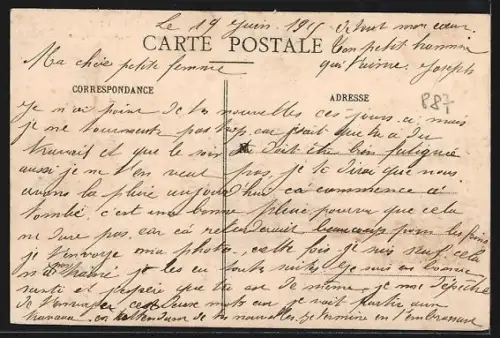 Le 19 Juin 1915
CARTE POSTALE
de tout mon cœur
Ton petit homme
qui t'aime. Joseph
Ma chère petite femme
CORRESPONDANCE
ADRESSE
P87
Je n'ai point de tes nouvelles ces jours ci, mais
je me tourmente pas trop, car je sait que tu a du
travail et que le soir tu doit être bien fatiguée
aussi je ne t'en veut pas, je te dirai que nous
avons la pluie aujourd'hui ça commence à
tombé, c'est une bonne pluie pourvu que cela
ne dure pas, car ça retarderait beaucoup pour les foins
je t'envoye ma photo, cette fois je suis seul, cela
m'a je les eu toute suite, Je suis en bonne
santé et j'espère que tu est de même, je me dépêche
de t'envoyer ces deux mots car je vait partir aux
travaux. en attendant de tes nouvelles. Je termine en t'embrassant